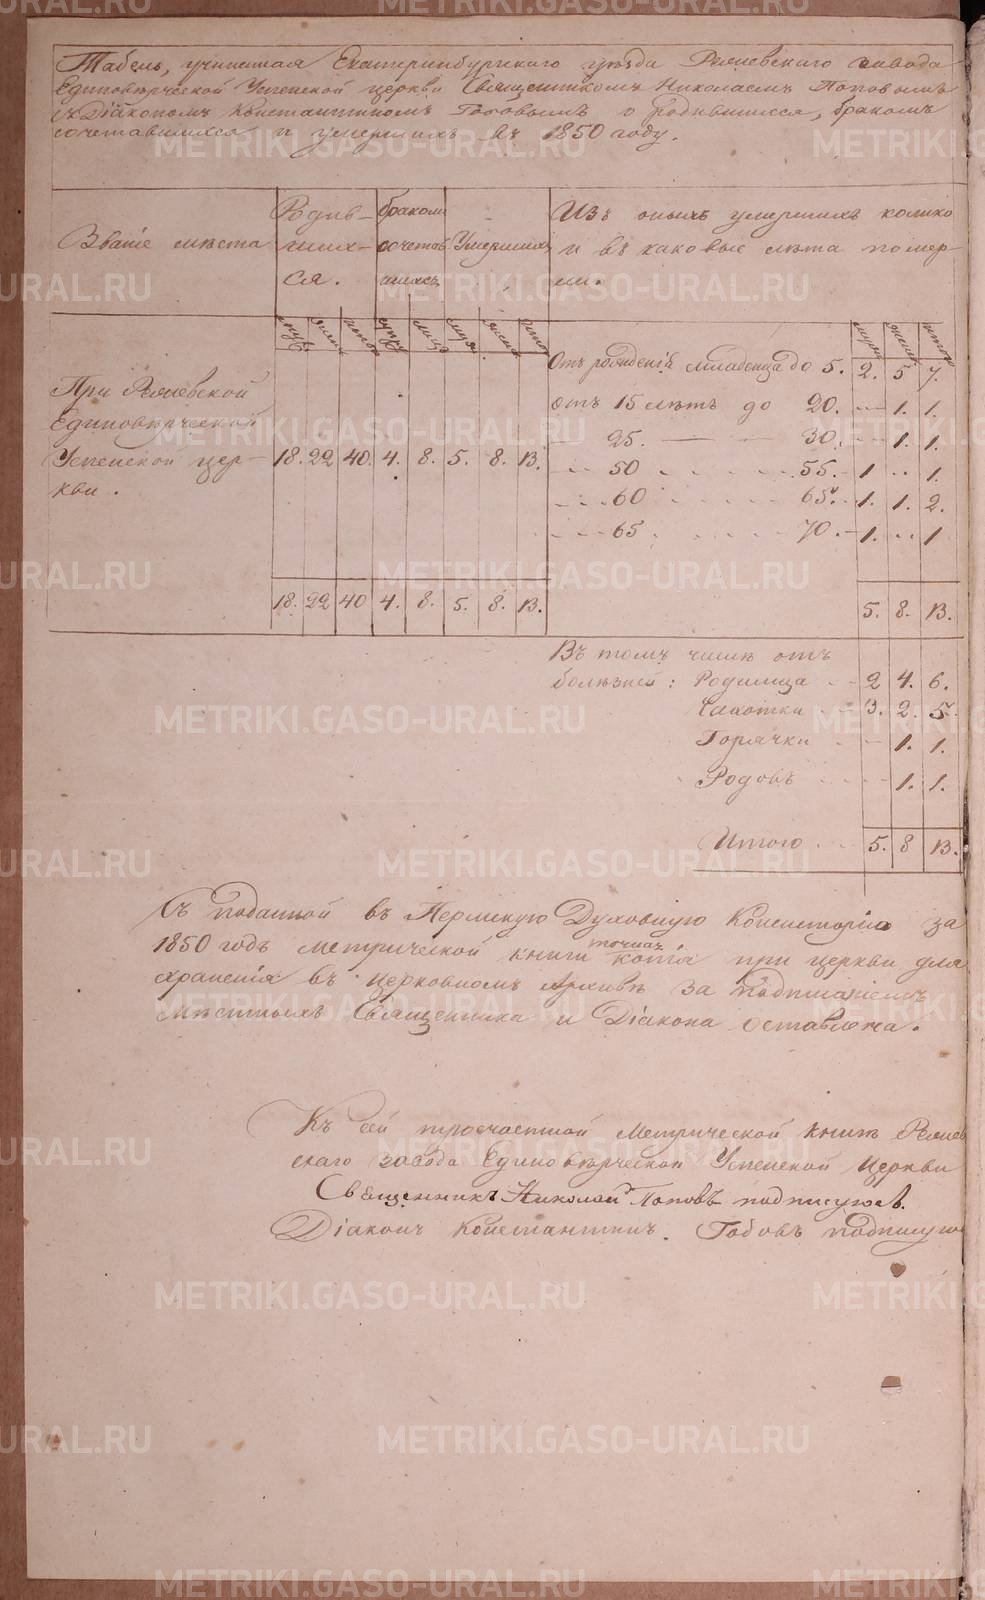 Табель, учиненная Екатеринбургскаго уѣзда Режевскаго завода
Единовѣрческой Успенской церкви Священникомъ Николаемъ Поповымъ
и Діакономъ Константиномъ Говымъ о родившихся, бракомъ
сочетавшихся и умершихъ въ 1850 году.
Званіе мѣста
Родив-
ших-
ся.
бракомъ
сочетав
шихся
Умершихъ
Изъ оныхъ умершихъ колико
и въ каковые лѣта помер-
ли.
При Режевской
Единовѣрческой
Успенской цер-
кви.
18. 22 40. 4. 8. 5. 8. 13.
Отъ рожденія младенца до 5. 2. 5 7.
отъ 15 лѣтъ до 20. 1. 1.
25. 30. 1. 1.
50 55. 1 1.
60 65. 1. 1. 2.
65. 70. 1. 1
18. 22 40 4. 8. 5. 8. 13.
5. 8. 13.
Въ томъ числѣ отъ
болѣзней: Родимца 2 4. 6.
Чахотки 3. 2. 5.
Горячки 1. 1.
Родовъ 1. 1.
Итого 5. 8 13.
Съ поданной въ Пермскую Духовную Консисторію за
1850 годъ метрической книги точная копія при церкви для
храненія въ церковномъ Архивѣ за подписаніемъ
мѣстныхъ Священника и Діакона оставлена.
Къ сей троечастной Метрической книгѣ Режев
скаго завода Единовѣрческой Успенской церкви
Священникъ Николай Поповъ подписуюсь.
Діаконъ Константинъ подписую
METRIKI.GASO-URAL.RU